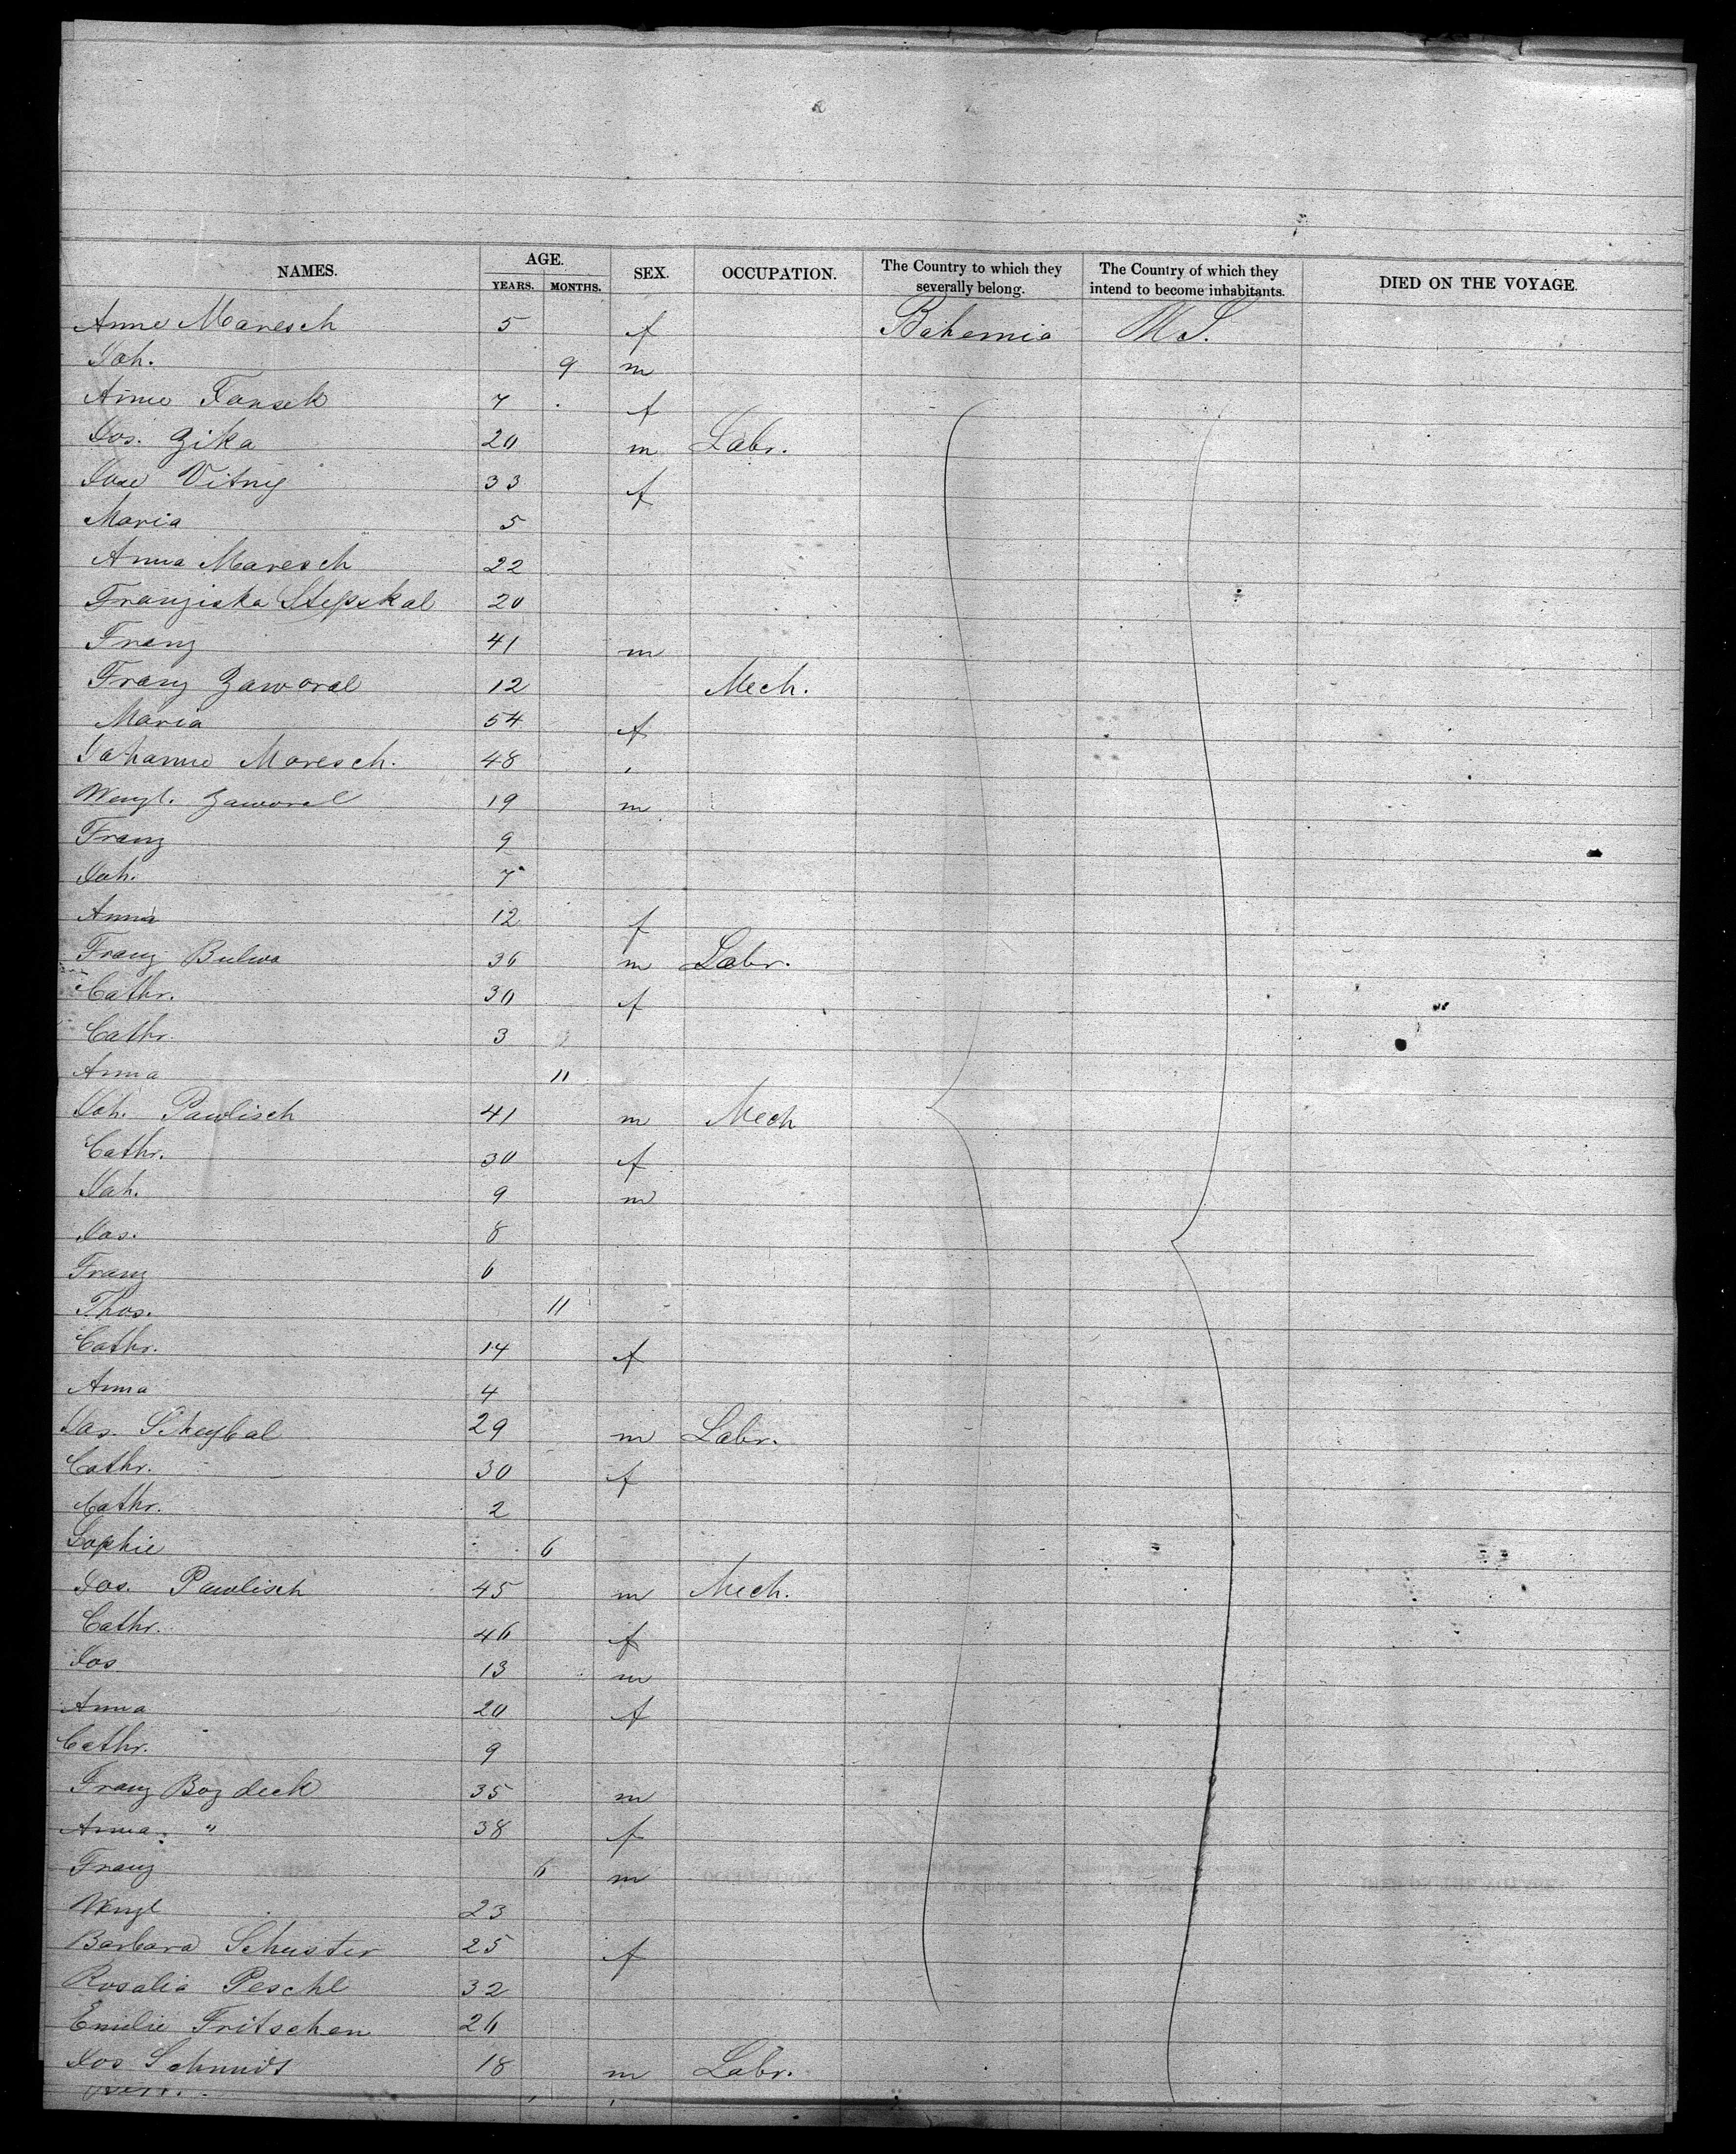 NAMES. AGE. YEARS. MONTHS. SEX. OCCUPATION. The Country to which they severally belong. The Country of which they intend to become inhabitants. DIED ON THE VOYAGE.
Anne Maresch 5 f Bohemia U S.
Joh. 9 m
Anne Fansek 7 f
Jos. Zika 20 m Labr.
Vitny 33 f
Maria 5
Anna Maresch 22
Franziska Stepskal 20
Franz 41 m
Franz Zaworal 12 Mech.
Maria 54 f
Johanne Maresch. 48
Wenzl. Zaworal 19 m
Franz 9
Joh. 7
Anna 12 f
Franz Bulwa 36 m Labr.
Cathr. 30 f
Cathr. 3
Anna 11
Joh. Pawlisch 41 m Mech
Cathr. 30 f
Joh. 9 m
Jos. 8
Franz 6
Thos. 11
Cathr. 14 f
Anna 4
Jos. Scheybal 29 m Labr.
Cathr. 30 f
Cathr. 2
Sophie 6
Jos. Pawlisch 45 m Mech.
Cathr. 46 f
Jos 13 m
Anna 20 f
Cathr. 9
Franz Bozdeck 35 m
Anna " 38 f
Franz 6 m
Wenzl 23
Barbara Schuster 25 f
Rosalia Peschl 32
Emilie Fritschen 26
Jos Schmidt 18 m Labr.